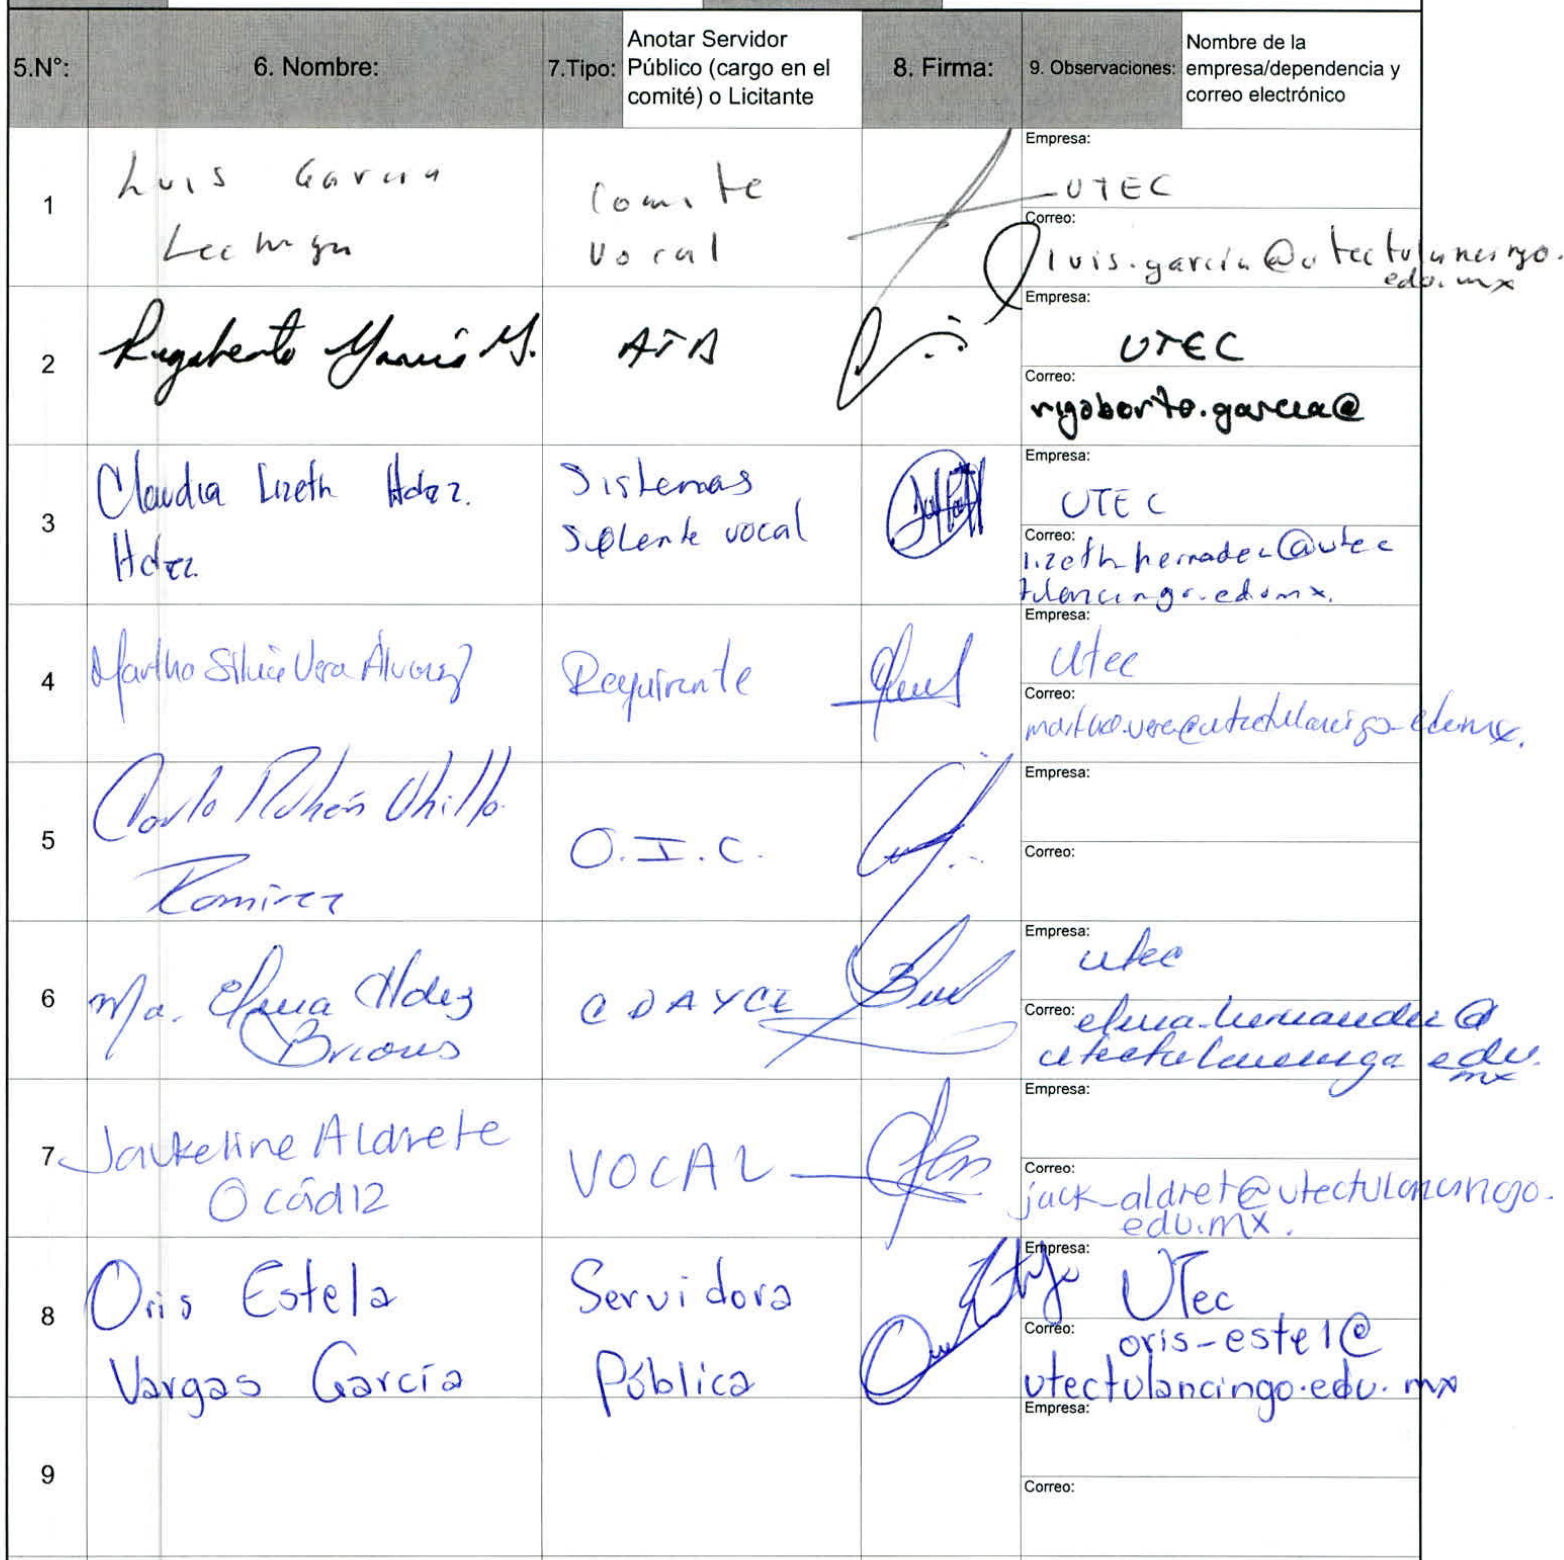 5.N°:
6. Nombre:
7.Tipo:
Anotar Servidor
Público (cargo en el
comité) o Licitante
8. Firma:
9. Observaciones:
Nombre de la
empresa/dependencia y
correo electrónico
1
Luis Garcia
Comite
Vocal
Empresa:
UTEC
Correo:
luis.garcia@utectulancingo.
edu.mx
2
Rigoberto García M.
Empresa:
UTEC
Correo:
rigoberto.garcia@
3
Claudia Lizeth Hdez.
Hdez.
Sistemas
vocal
Empresa:
UTEC
Correo:
@utec
tulancingo.edu.mx.
4
Martha Silvia Vera Álvarez
Requirente
Empresa:
Utec
Correo:
martha.vera@utectulancingo.edu.mx.
5
Ramirez
O.I.C.
Empresa:
Correo:
6
Ma. Elena Hdez
Briones
CDAYCE
Empresa:
utec
Correo:
elena.hernandez@
utectulancingo.edu.
mx
7
Jackeline Aldrete
Ocádiz
VOCAL
Empresa:
Correo:
jack_aldret@utectulancingo.
edu.mx.
8
Oris Estela
Vargas García
Servidora
Pública
Empresa:
UTec
Correo:
oris-estel@
utectulancingo.edu.mx
9
Empresa:
Correo: